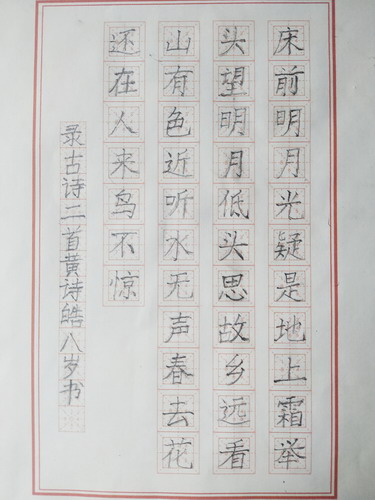 床前明月光疑是地上霜举
头望明月低头思故乡远看
山有色近听水无声春去花
还在人来鸟不惊
录古诗二首黄诗皓八岁书